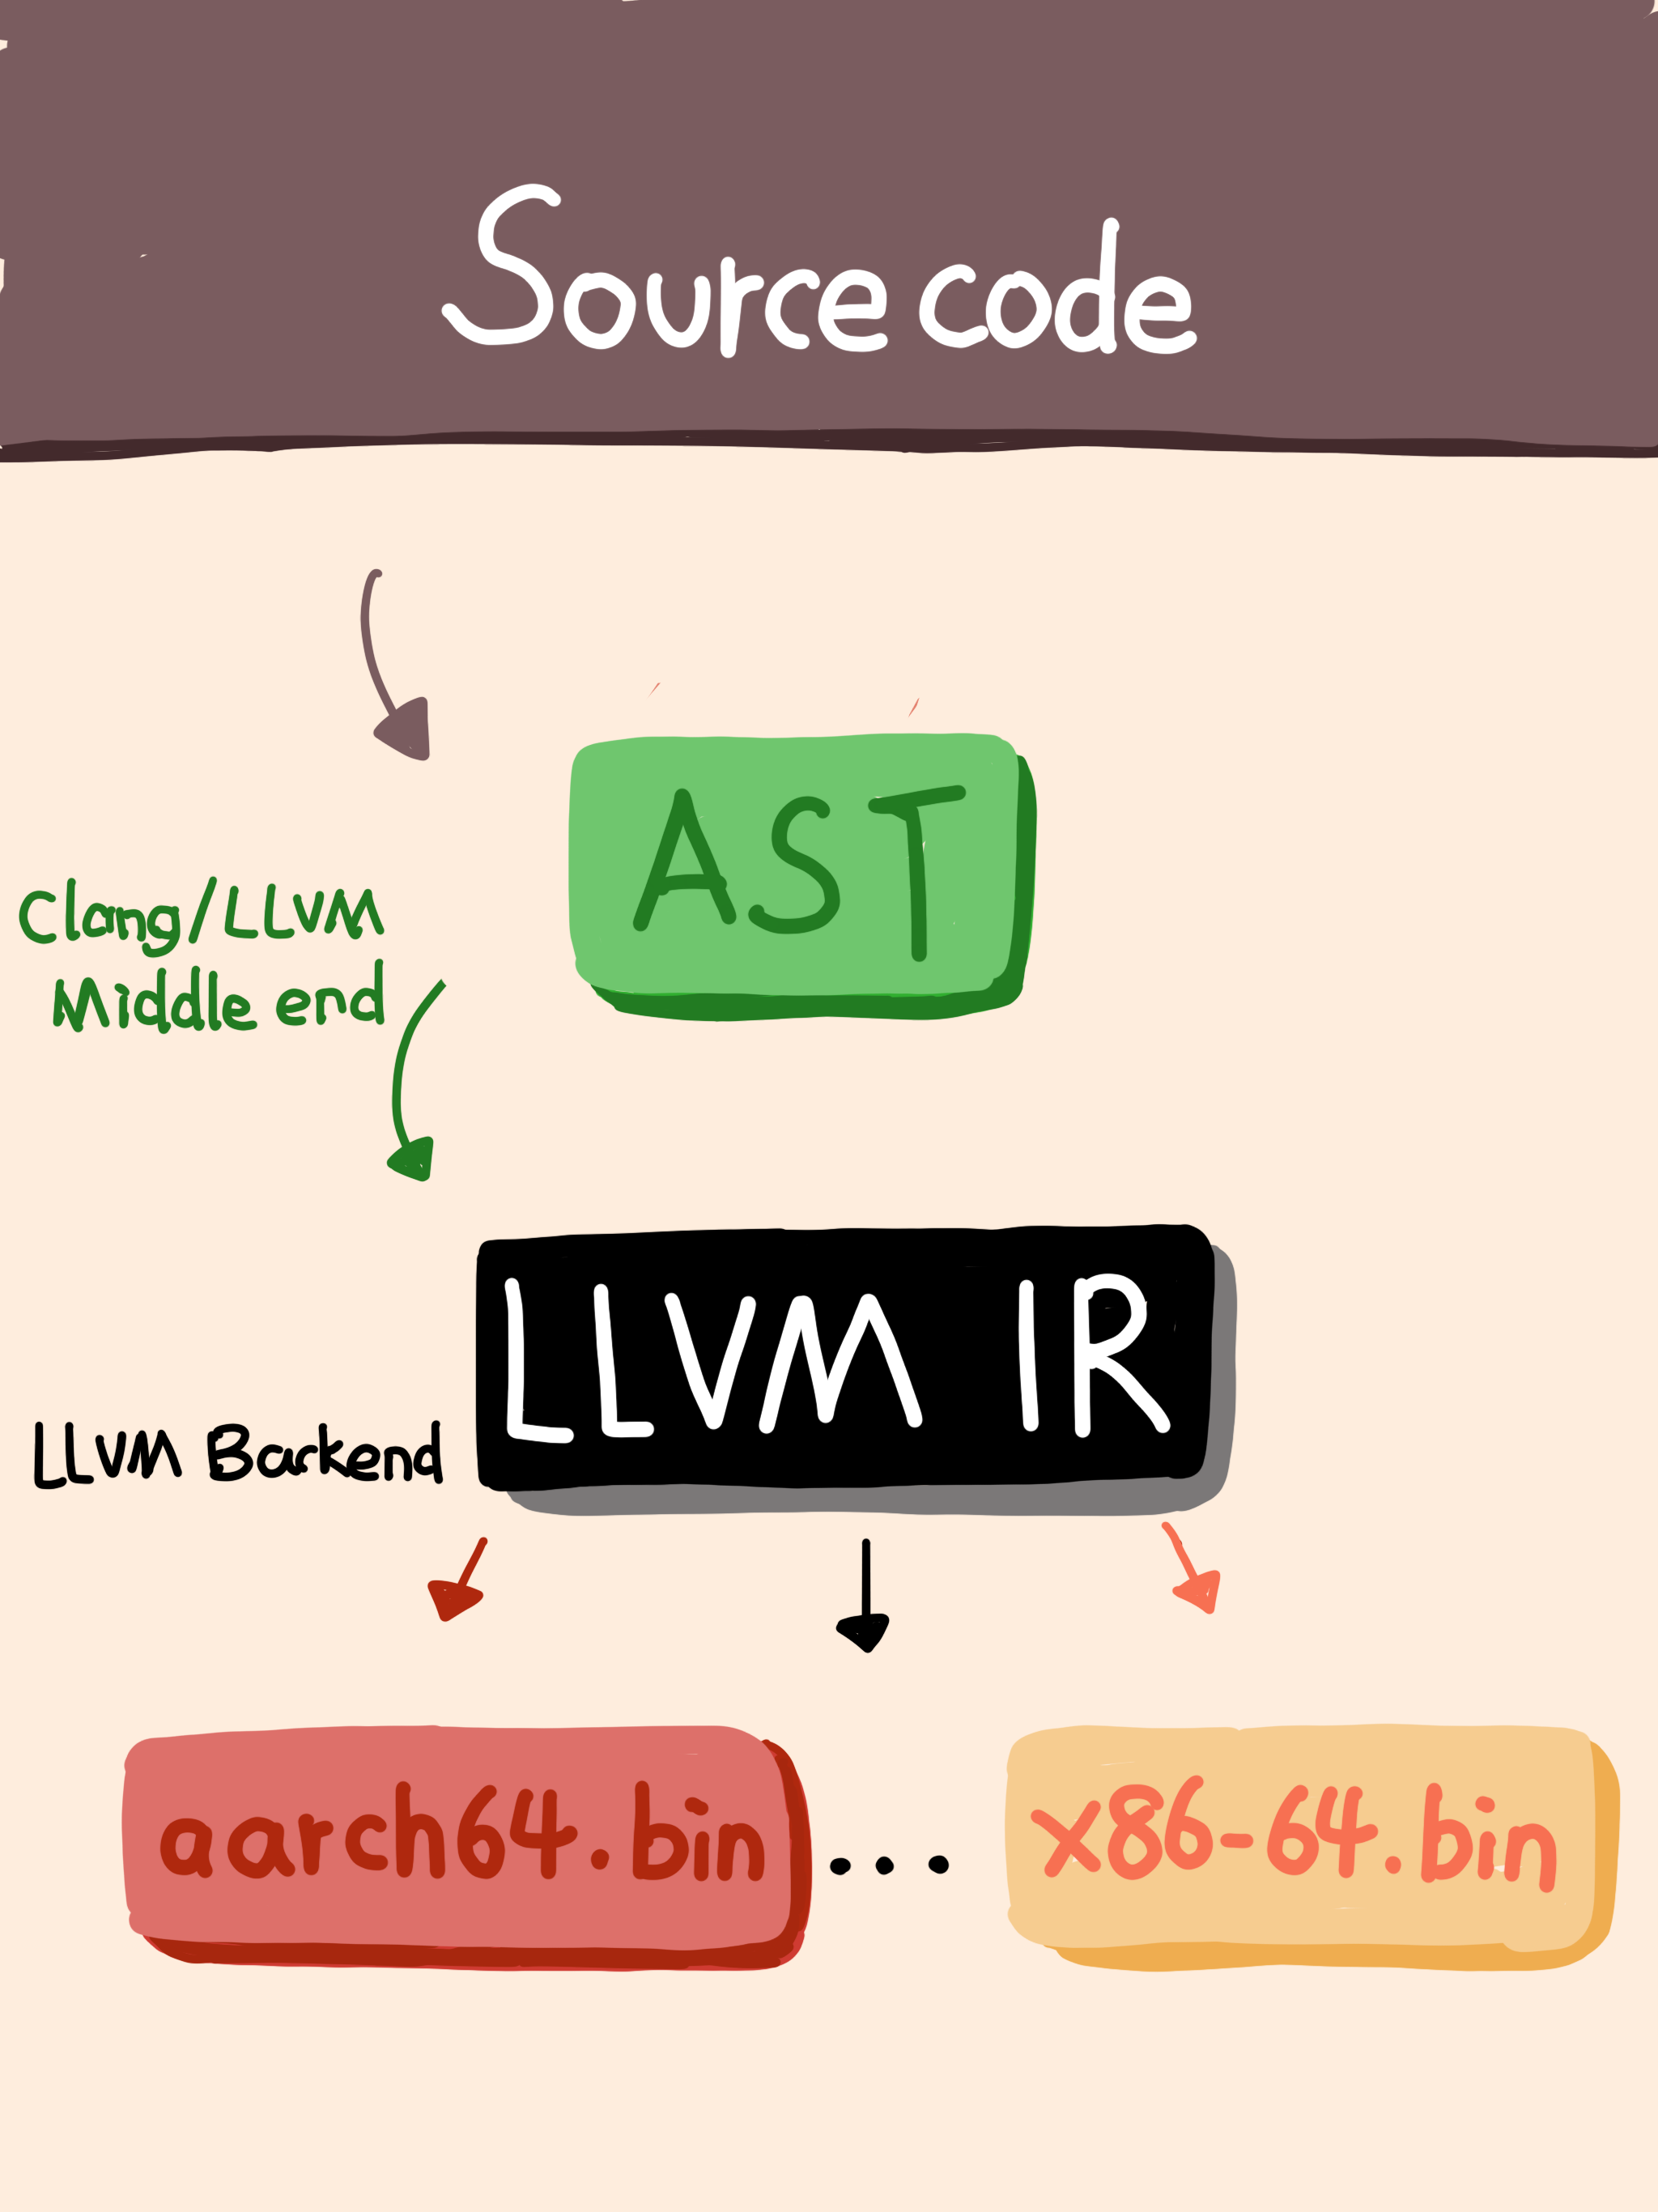 Source code
AST
Clang/LLVM
Middle end
LLVM IR
LLVM Backend
aarch64.bin
...
x86-64.bin